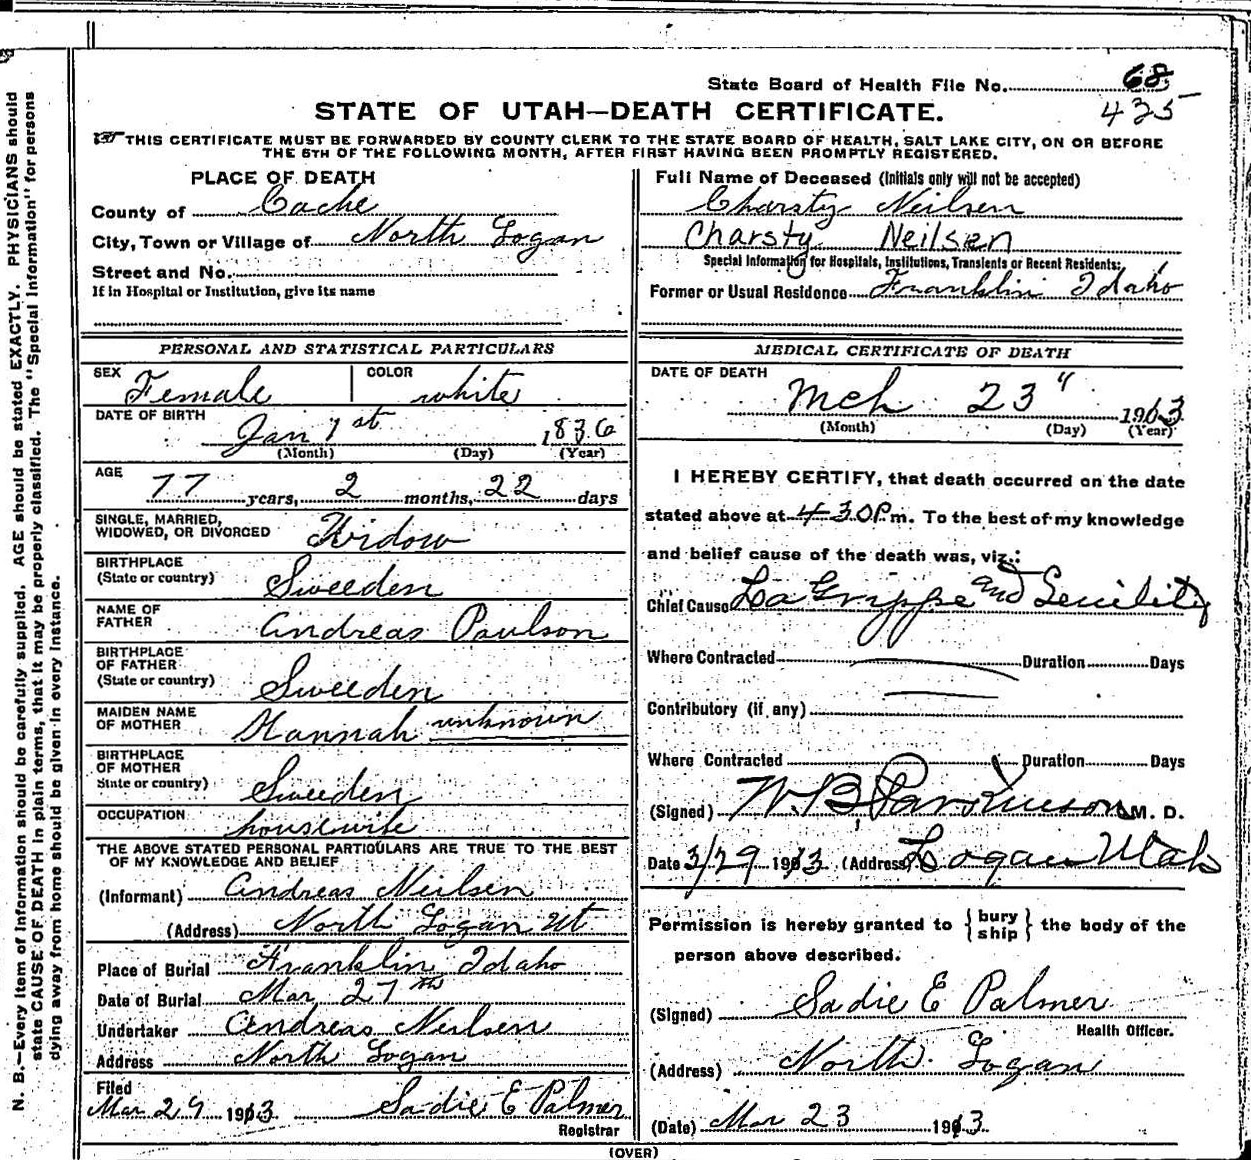 State Board of Health File No. 68
435
STATE OF UTAH—DEATH CERTIFICATE.
THIS CERTIFICATE MUST BE FORWARDED BY COUNTY CLERK TO THE STATE BOARD OF HEALTH, SALT LAKE CITY, ON OR BEFORE
THE 5TH OF THE FOLLOWING MONTH, AFTER FIRST HAVING BEEN PROMPTLY REGISTERED.
PLACE OF DEATH
County of Cache
City, Town or Village of North Logan
Street and No.
If in Hospital or Institution, give its name
Full Name of Deceased (Initials only will not be accepted)
Charsty Neilsen
Charsty Neilsen
Special Information for Hospitals, Institutions, Transients or Recent Residents:
Former or Usual Residence Franklin Idaho
PERSONAL AND STATISTICAL PARTICULARS
SEX Female COLOR white
DATE OF BIRTH Jan 1st 1836
(Month) (Day) (Year)
AGE 77 years, 2 months, 22 days
SINGLE, MARRIED,
WIDOWED, OR DIVORCED Widow
BIRTHPLACE
(State or country) Sweeden
NAME OF
FATHER Andreas Paulson
BIRTHPLACE
OF FATHER
(State or country) Sweeden
MAIDEN NAME
OF MOTHER Hannah unknown
BIRTHPLACE
OF MOTHER
State or country) Sweeden
OCCUPATION housewife
THE ABOVE STATED PERSONAL PARTICULARS ARE TRUE TO THE BEST
OF MY KNOWLEDGE AND BELIEF
(Informant) Andreas Neilsen
(Address) North Logan Ut
Place of Burial Franklin Idaho
Date of Burial Mar 27th
Undertaker Andreas Neilsen
Address North Logan
Filed
Mar 29 1913 Sadie E Palmer
Registrar
MEDICAL CERTIFICATE OF DEATH
DATE OF DEATH
Mch 23" 1913
(Month) (Day) (Year)
I HEREBY CERTIFY, that death occurred on the date
stated above at 4 30 P.m. To the best of my knowledge
and belief cause of the death was, viz.:
Chief Cause La Grippe and Senility
Where Contracted Duration Days
Contributory (if any)
Where Contracted Duration Days
(Signed) W. B. Parkinson M. D.
Date 3/29 1913 (Address) Logan Utah
Permission is hereby granted to {bury ship} the body of the
person above described.
(Signed) Sadie E Palmer
Health Officer.
(Address) North Logan
(Date) Mar 23 1913
(OVER)
N. B.—Every item of information should be carefully supplied. AGE should be stated EXACTLY. PHYSICIANS should
state CAUSE OF DEATH in plain terms, that it may be properly classified. The "Special Information" for persons
dying away from home should be given in every instance.